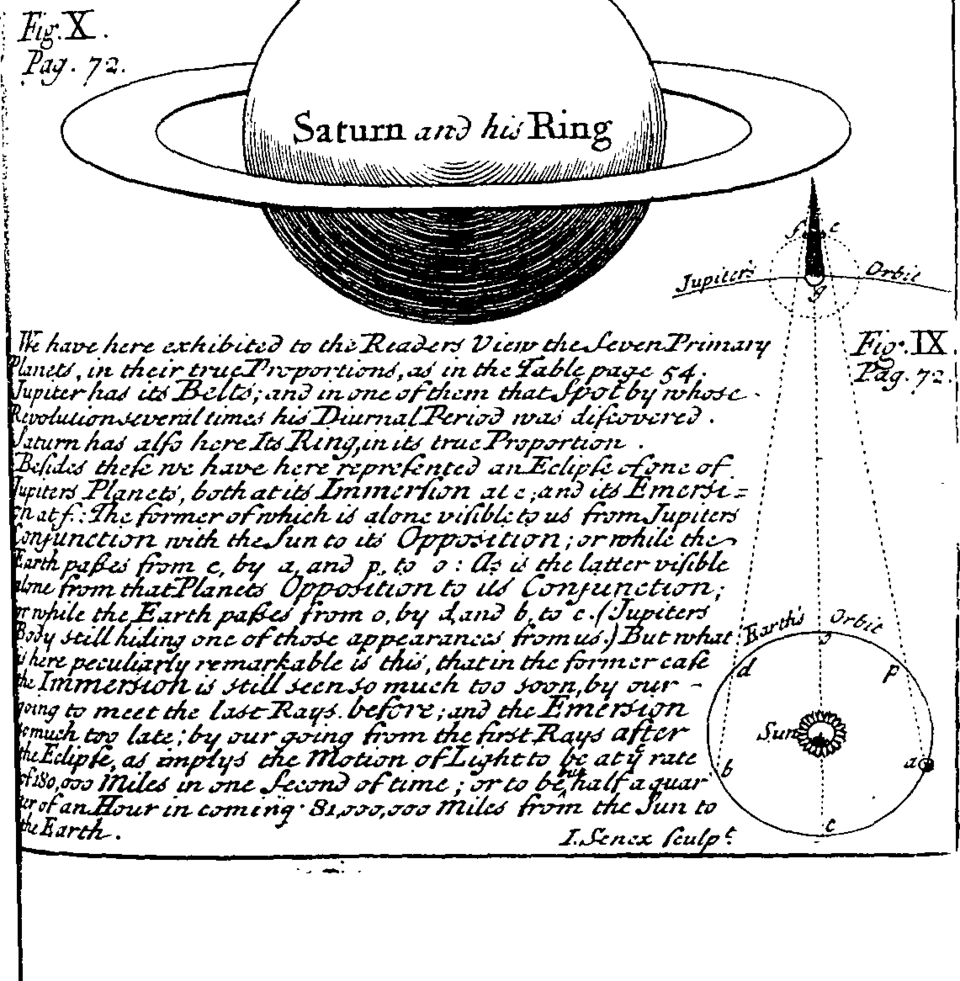 Fig. X.
Pag. 72.
Saturn and his Ring
f e
Jupiter's Orbit
g
Fig. IX.
Pag. 72.
We have here exhibited to the Readers View the Seven Primary
Planets, in their true Proportions, as in the Table page 54.
Jupiter has its Belts; and in one of them that Spot by whose
Revolution several times his Diurnal Period was discovered.
Saturn has also here Its Ring, in its true Proportion.
Besides these we have here represented an Eclipse of one of
Jupiters Planets, both at its Immersion at e; and its Emersi=
on at f.: The former of which is alone visible to us from Jupiters
Conjunction with the Sun to its Opposition; or while the
Earth paßes from c, by a, and p, to o: As is the latter visible
alone from that Planets Opposition to its Conjunction;
or while the Earth paßes from o, by d, and b, to c. (:Jupiters
Body still hiding one of those appearances from us.) But what
is here peculiarly remarkable is this, that in the former case
the Immersion is still seen so much too soon, by our -
going to meet the last Rays before; and the Emersion
so much too late; by our going from the first Rays after
the Eclipse, as implys the Motion of Light to be at yͤ rate
of 180,000 Miles in one Second of time; or to be but half a quar
ter of an Hour in coming 81,000,000 Miles from the Sun to
the Earth.
Earth's Orbit
o
d p
Sun
b a
c
I. Senex sculpᵗ.